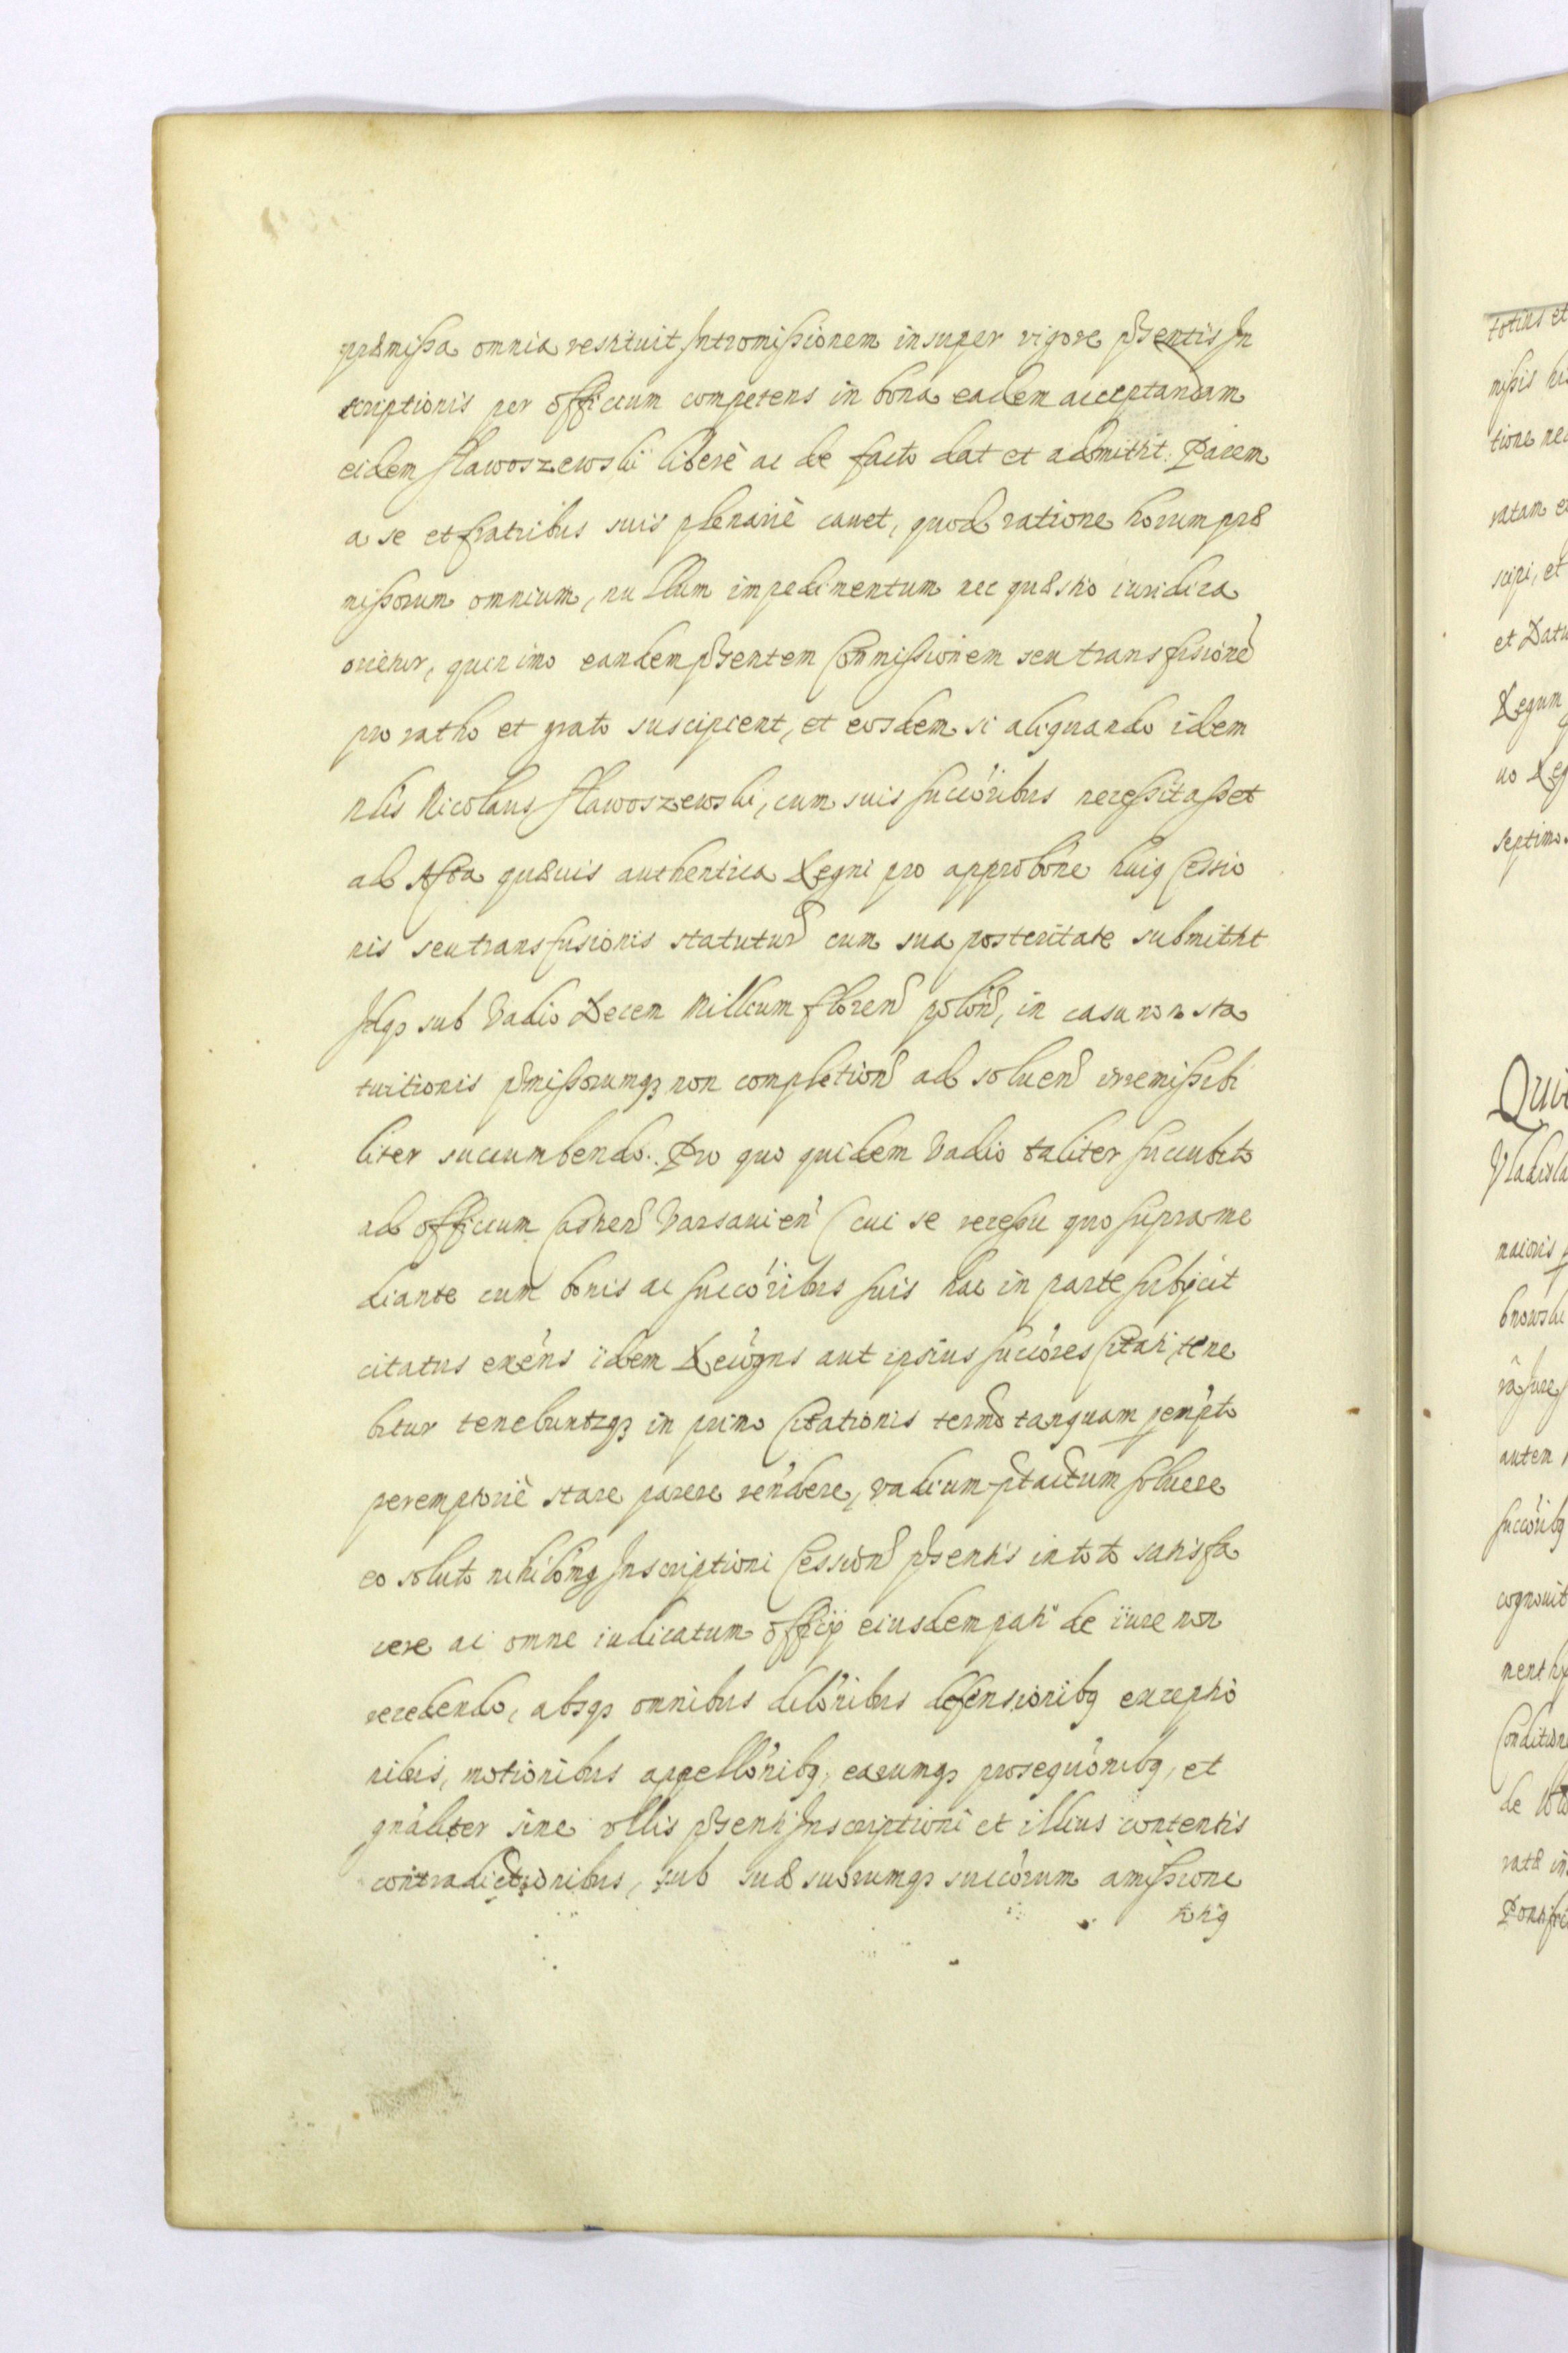 præmissa omnia restituit Intromissionem insuper vigore pñsentis In
scriptionis per officium competens in bona eadem acceptandam
eidem Sławoszewski liberè ac de facto dat et admittit. Pacem
a se et fratribus suis plenariè cauet, quod ratione horum præ
missorum omnium, nullum impedimentum nec quæstio iuridica
orietur, quin imo eandem pñsentem Comissionem seu transfusionē
pro ratho et grato suscipient, et eosdem si aliquando idem
Nlis Nicolaus Sławoszewski, cum suis succõribus necessitasset
ad Acta quæuis authentica Regni pro approbõne huiq Cessio
nis seu transfusionis statutur cum sua posteritate submittit
Idq3 sub Vadio Decem Millium floren polon, in casu non sta
tuitionis pmissorumq3 non completion ad soluen irremissibi
liter succumbendo. Pro quo quidem Vadio taliter succubito
ad officium Castren Varsauien (cui se recessu quo supra me
diante cum bonis ac succõribus suis hac in parte subijcit
citatus exẽns idem Recõgns aut ipsius succõres Citati, tene
bitur tenebunturq3 in primo Citationis termõ tanquam pempto
peremptoriè stare parere rẽndere, vadium ptactum soluere
eo soluto nihilõmq Inscriptioni Cession pñsentis in toto satisfa
cere ac omne iudicatum officÿ eiusdem pati de iure non
recedendo, absq3 omnibus dilõnibus defensionibq exceptio
nibus, motionibus appellõnibq, earumq3 prosequõnibq, et
gnãliter sine vllis pñsenti Inscriptioni et illius contentis
contradictionibus, sub suæ suorumq3 succõrum amissione
totiq
totius et
missis
tione
ratam
scipi, et
et Datu
Regum
septimo
Qui
Vladisla
maioris
autem
succõribq
cognouit
Conditione
de
ratæ in